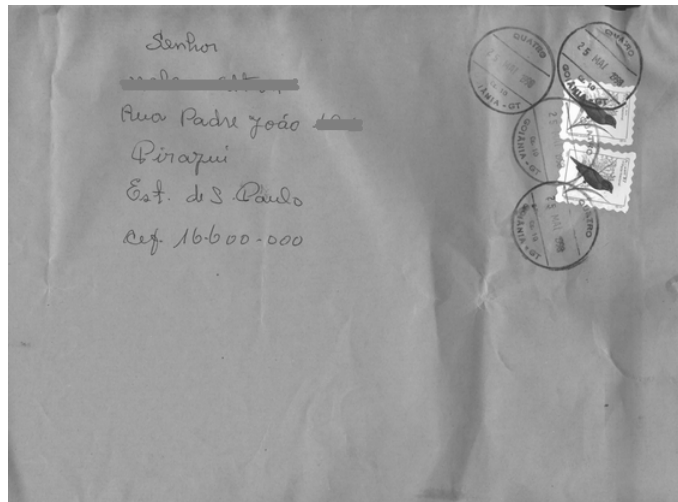 Senhor
Rua Padre João
Pirajuí
Est. de S. Paulo
Cep. 16.600-000
QUATRO
25 MAI 1998
GOIÂNIA - GT
QUATRO
25 MAI 1998
GOIÂNIA - GT
QUATRO
25
GOIÂNIA - GT
QUATRO
25 MAI 1998
GOIÂNIA - GT